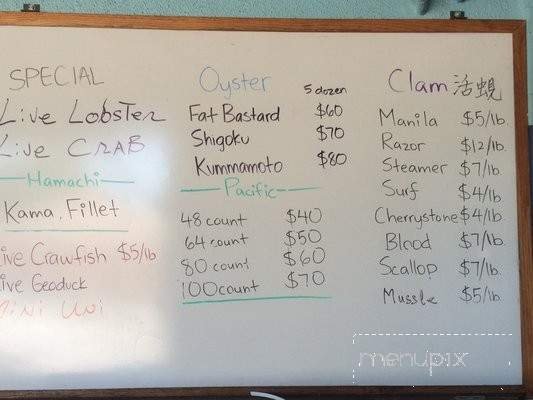 SPECIAL
Live Lobster
Live CRAB
Hamachi
Kama, Fillet
ive Crawfish $5/lb
ive Geoduck
Mini Uni
Oyster
5 dozen
Fat Bastard $60
Shigoku $70
Kummamoto $80
Pacific
48 count $40
64 count $50
80 count $60
100 count $70
Clam 活蜆
Manila $5/lb.
Razor $12/lb.
Steamer $7/lb.
Surf $4/lb
Cherrystone $4/lb.
Blood $7/lb.
Scallop $7/lb.
Mussle $5/lb.
menupix